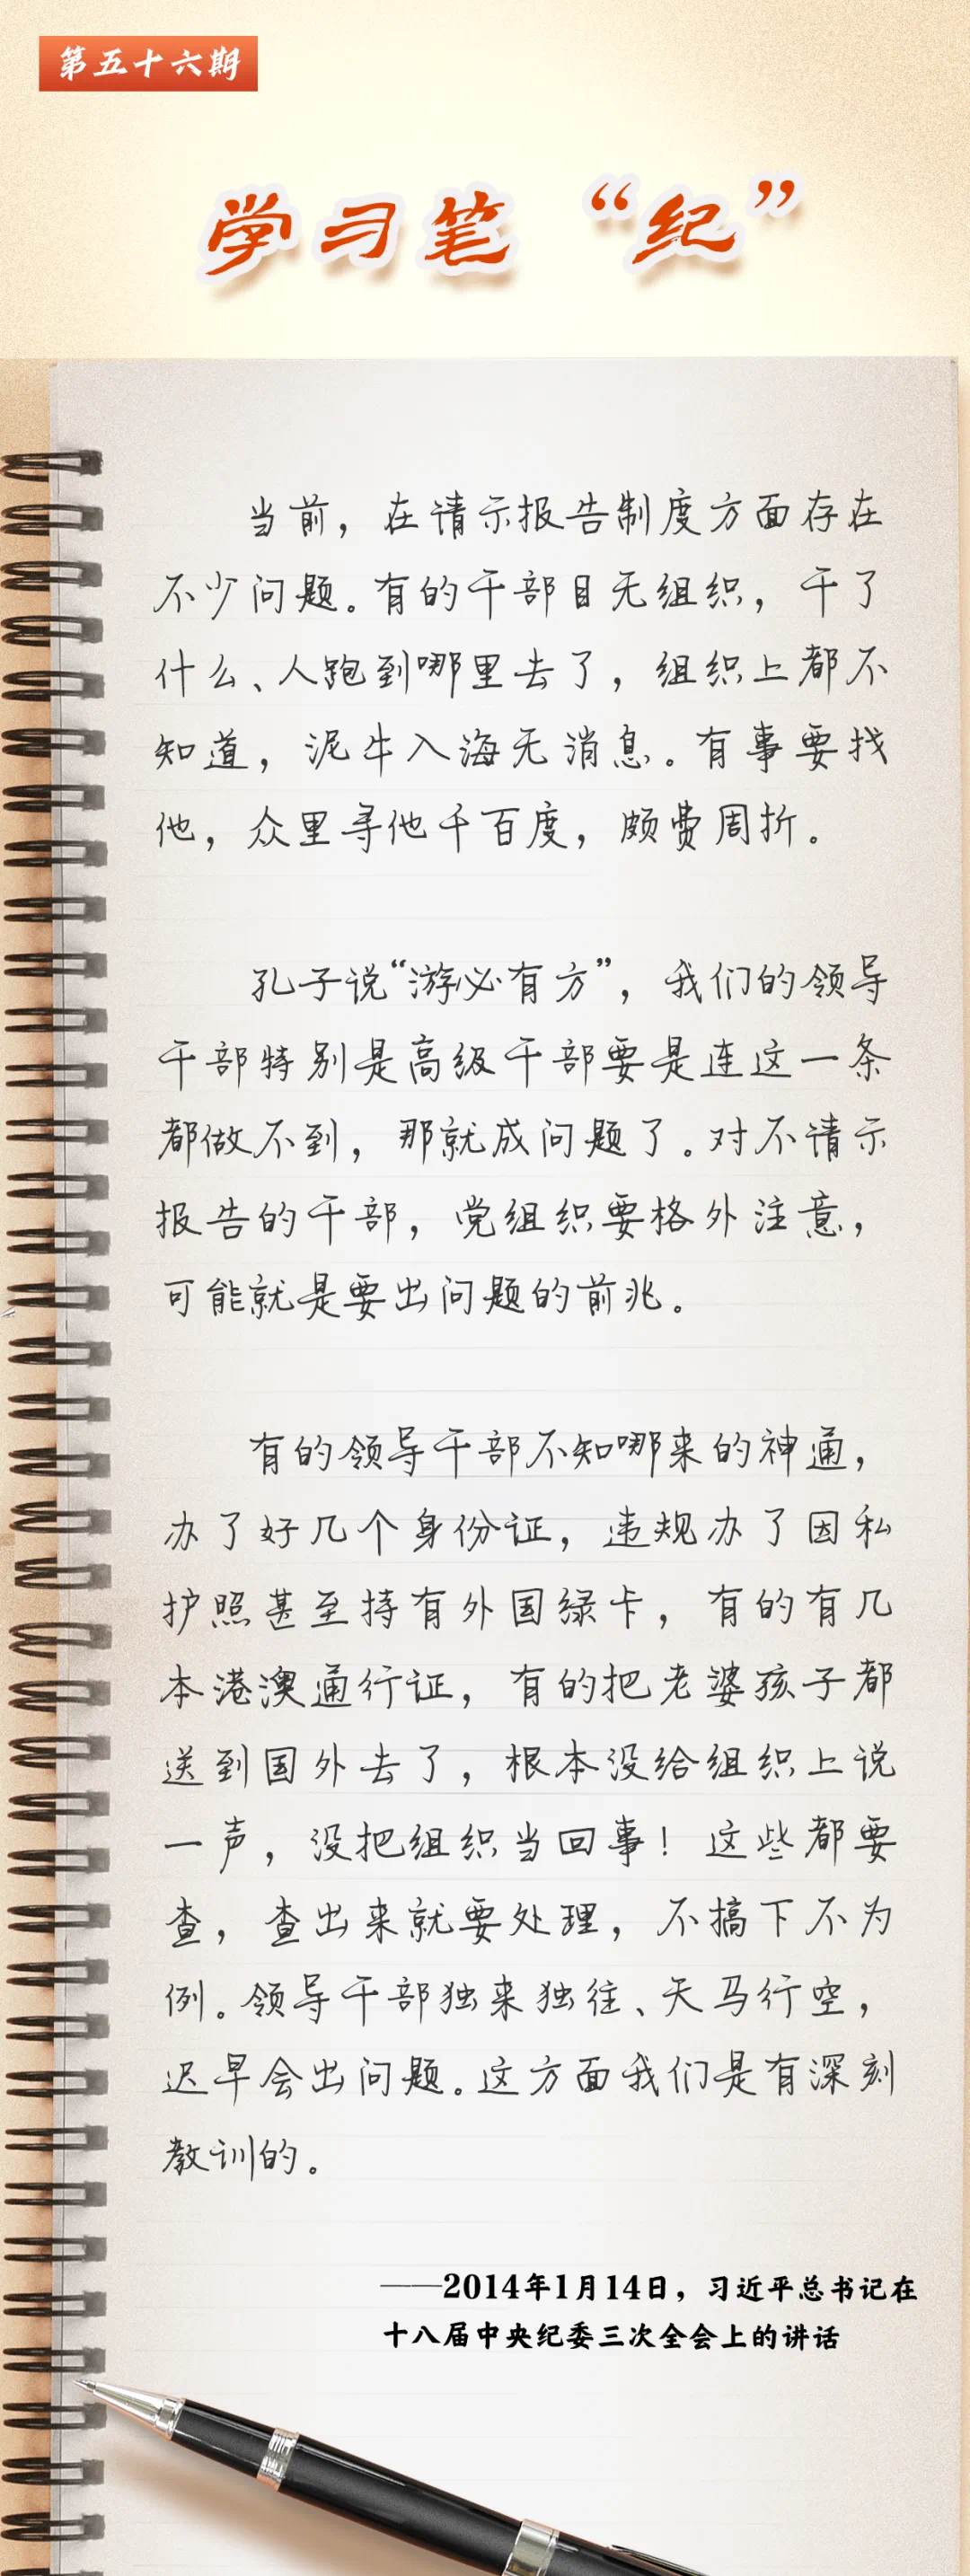 第五十六期
学习笔“纪”
当前，在请示报告制度方面存在
不少问题。有的干部目无组织，干了
什么、人跑到哪里去了，组织上都不
知道，泥牛入海无消息。有事要找
他，众里寻他千百度，颇费周折。
孔子说“游必有方”，我们的领导
干部特别是高级干部要是连这一条
都做不到，那就成问题了。对不请示
报告的干部，党组织要格外注意，
可能就是要出问题的前兆。
有的领导干部不知哪来的神通，
办了好几个身份证，违规办了因私
护照甚至持有外国绿卡，有的有几
本港澳通行证，有的把老婆孩子都
送到国外去了，根本没给组织上说
一声，没把组织当回事！这些都要
查，查出来就要处理，不搞下不为
例。领导干部独来独往、天马行空，
迟早会出问题。这方面我们是有深刻
教训的。
——2014年1月14日，习近平总书记在
十八届中央纪委三次全会上的讲话